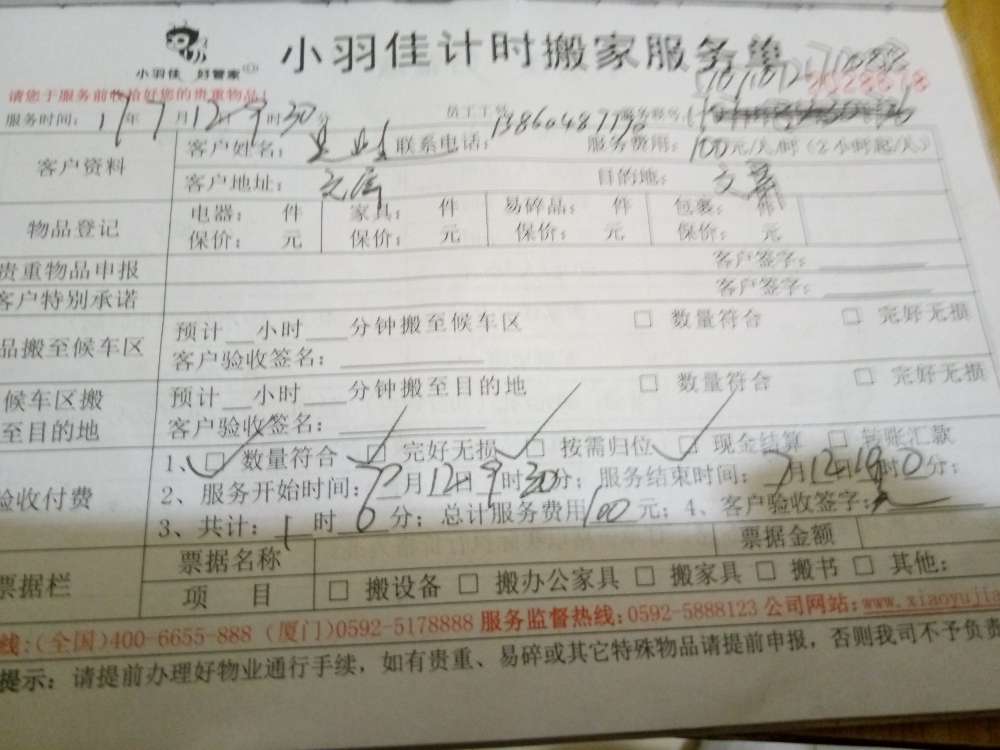 小羽佳计时搬家服务单
小羽佳 好管家
请您于服务前收拾好您的贵重物品!
服务时间: 17年7月12日9时30分 员工工号
客户资料 客户姓名: 联系电话: 服务费用: 100元/人/时(2小时起/人)
客户地址: 目的地:
物品登记 电器: 件 家具: 件 易碎品: 件 包裹: 件
保价: 元 保价: 元 保价: 元 保价: 元
贵重物品申报 客户签字:
客户特别承诺 客户签字:
品搬至候车区 预计__小时___分钟搬至候车区 □ 数量符合 □ 完好无损
客户验收签名:
候车区搬至目的地 预计__小时___分钟搬至目的地 □ 数量符合 □ 完好无损
客户验收签名:
验收付费 1、□ 数量符合 □ 完好无损 □ 按需归位 □ 现金结算 □ 转账汇款
2、服务开始时间: 7月12日9时30分; 服务结束时间: 7月12日 时0分;
3、共计: 1时0分; 总计服务费用100元; 4、客户验收签字:
票据栏 票据名称 票据金额
项 目 □ 搬设备 □ 搬办公家具 □ 搬家具 □ 搬书 □ 其他:
线:(全国)400-6655-888 (厦门)0592-5178888 服务监督热线:0592-5888123 公司网站:www.xiaoyujia
提示: 请提前办理好物业通行手续, 如有贵重、易碎或其它特殊物品请提前申报, 否则我司不予负责